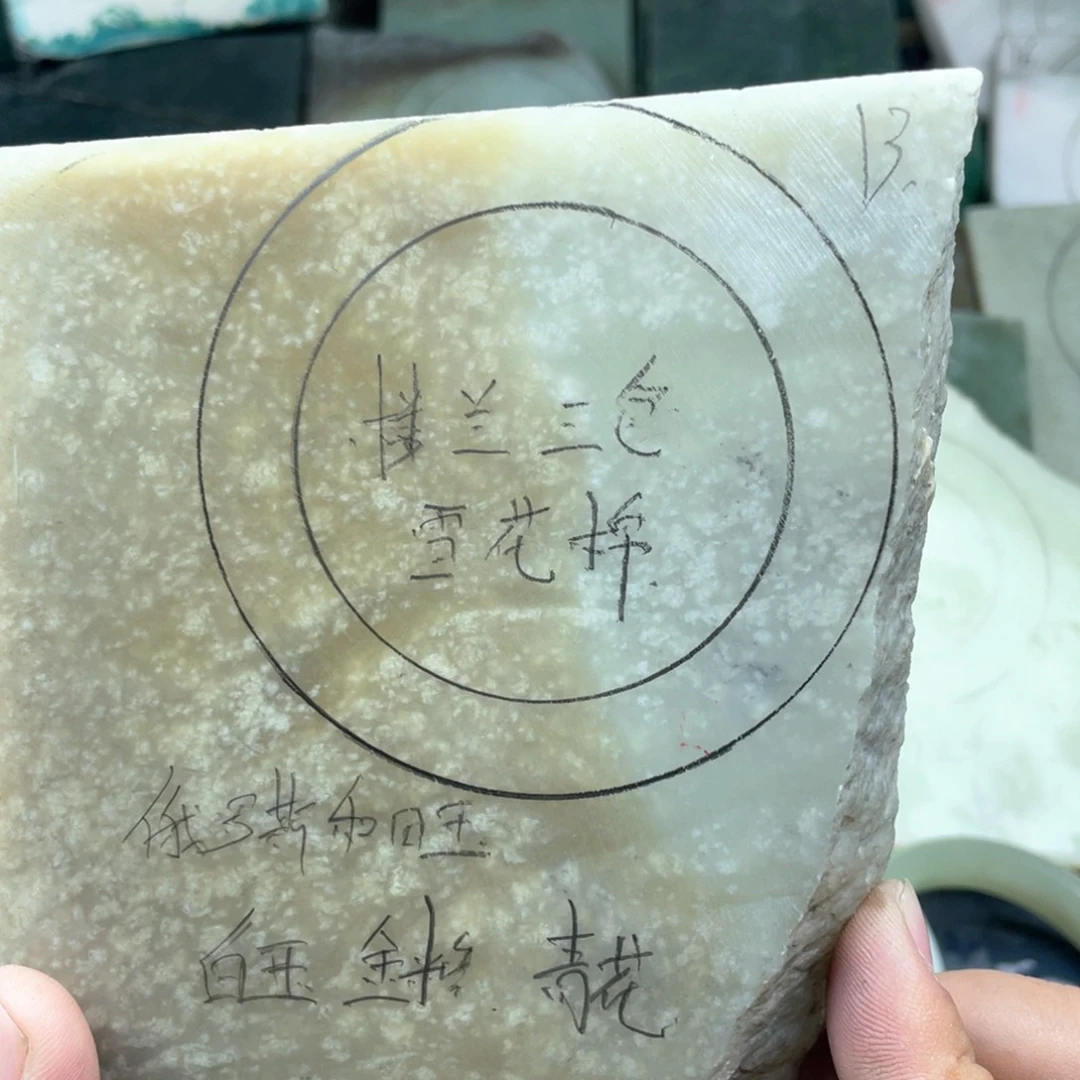 B.
楼兰三色
雪花棉
俄罗斯和田玉
白玉 金粉 青花